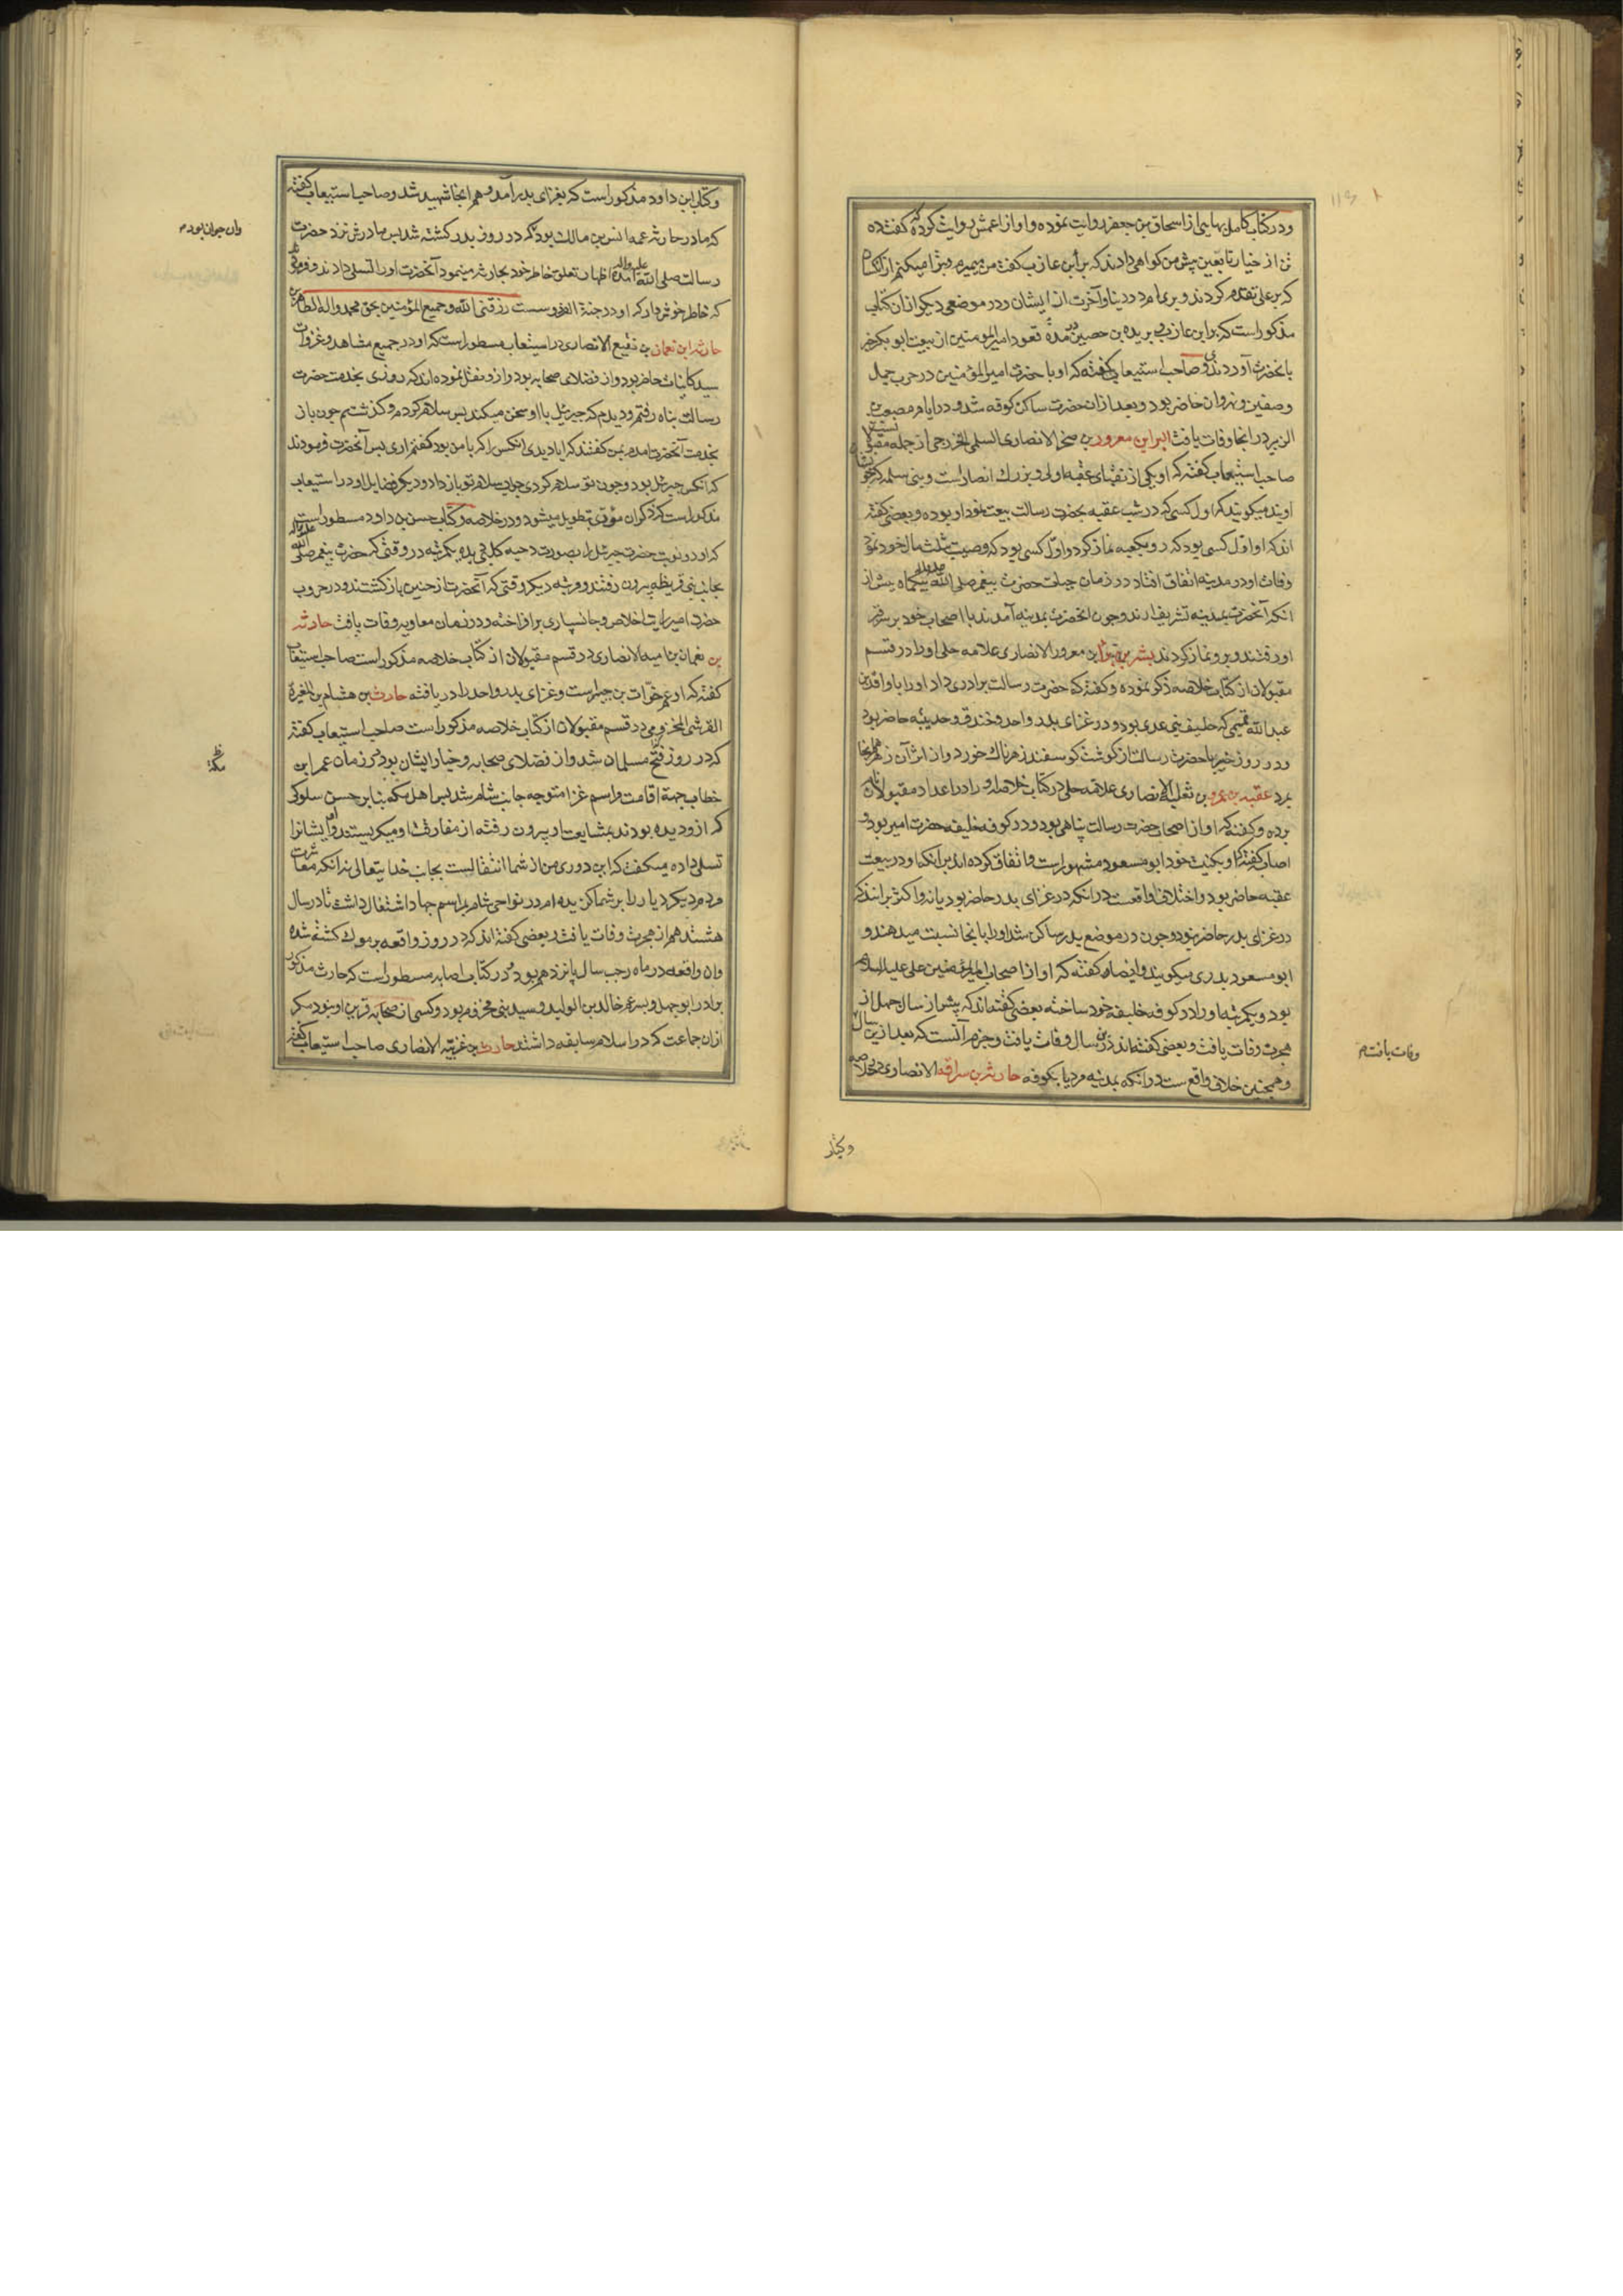 و در کتاب کامل بهایی از اسحاق بن جعفر روایت نموده و او از اعمش روایت کرده که گفت ده
تن از خیار تابعین پیش من گواهی دادند که براء بن عازب گفت من میبرم و تبرا میکنم از آنکسام
که بر علی تقدم کردند و بریام در دنیا و آخرت از ایشان و در موضعی دیگر ازان کتاب
مذکور است که براء بن عازب بریده بن حصین در مدة قعود امیرالمومنین از بیعت ابوبکر خبر
بانحضرت آوردندی و صاحب استیعاب گفته که او با حضرت امیرالمؤمنین در حرب جمل
وصفین و نهروان حاضر بود و بعد ازان حضرت ساکن کوفه شد و در ایام مصعب بن
الزبیر در انجا وفات یافت البراء بن معرور بن صخر الانصاری السلمی الخزرجی از جمله مقبولان
صاحب استیعاب گفته که او یکی از نقبای عقبه اولی و بزرک انصار است و بنی سلمه که خویشان
اویند میکویند که اول کسی که در شب عقبه بحضرت رسالت بیعت نمود او بوده و بعضی گفته
اند که او اوّل کسی بود که رو بکعبه نماز کرد و اوّل کسی بود که وصیت بثلث مال خود نمود
وفات او در مدینه اتفاق افتاد در زمان حیات حضرت پیغمبر صلی الله علیه و اله بیکماه پیش از
انکه آنحضرت بمدینه تشریف ارند و چون انحضرت بمدینه آمدند با اصحاب خود بر سر قبر
او رفتند و برو نماز کردند بشر بن براء بن معرور الانصاری علامه حلی او را در قسم
مقبولان از کتاب خلاصه ذکر نموده و گفته که حضرت رسالت برادری داد او را با واقد بن
عبد الله تمیمی که حلیف بنی عدی بود و در غزای بدر واحد و خندق و حدیبیه حاضر بود
و در روز خیبر با حضرت رسالت از کوشت کوسفند زهرناک خورد و از اثر آن زهر هم انجا
بمرد عقبه بن عمرو بن ثعلبة الانصاری علامه حلی در کتاب خلاصه او را در اعداد مقبولان نام
برده و گفته که او از اصحاب حضرت رسالت پناهی بود و در کوفه خلیفه حضرت امیر بود و
اصابه گفته که او بکنیت خود ابومسعود مشهور است و اتفاق کرده اند بر انکه او در بیعت
عقبه حاضر بود و اختلافی واقعست در انکه در غزای بدر حاضر بود یا نه و اکثر برانند که
در غزای بدر حاضر نبود و چون در موضع بدر ساکن شد او را بانجا نسبت میدهند و
ابومسعود بدری میکویند و ایضا گفته که او از اصحاب امیرالمؤمنین علی علیه السلام
بود و یکمرتبه او را در کوفه خلیفه خود ساخته بعضی گفته اند که پیش از سال چهل از
هجرت وفات یافت و بعضی گفته اند درین سال وفات یافت و جزم آنست که بعد ازین سال
وفات یافت م
و همچنین خلافی واقع ست در انکه بمدینه مرد یا بکوفه حارثه بن سراقه الانصاری در خلاصه
وکتاب
و کتاب ابن داود مذکور است که بغزای بدر آمد و هم انجا شهید شد و صاحب استیعاب گفته
که مادر حارثه عمه انس بن مالک بود که در روز بدر کشته شد پس مادرش نزد حضرت
وان جوان بود م
رسالت صلی الله علیه و اله آمده اظهار تعلق خاطر خود بحارثه مینمود آنحضرت او را تسلی دادند و فرمودند
که خاطر خوش دار که او در جنة الفردوسست رزقنی الله و جمیع المؤمنین بحق محمد واله الطاهرین
حارثه ابن نعمان بن نفیع الانصاری در استیعاب مسطور است که او در جمیع مشاهد و غزوات
سید کاینات حاضر بود و از فضلای صحابه بود و ازو نقل نموده اند که روزی بخدمت حضرت
رسالت پناه رفتم و دیدم که جبرئیل با او سخن میکند پس سلام کردم و کذشتم چون باز
بخدمت آنحضرت امدم بمن گفتند که ایا دیدی انکس را که با من بود گفتم اری پس آنحضرت فرمودند
که آنکس جبرئیل بود و چون تو سلام کردی جواب سلام تو باز داد و دیکر فضایل او در استیعاب
مذکور است که ذکر ان مؤدی بتطویل میشود و در خلاصه و کتاب حسن بن داود مسطور است
که او دو نوبت حضرت جبرئیل را بصورت دحیه کلبی دیده یکمرتبه در وقتی که حضرت پیغمبر صلی الله علیه و اله
بجانب بنی قریظه بیرون رفتند و مرتبه دیکر وقتی که آنحضرت از حنین باز کشتند و در حروب
حضرت امیر رایت اخلاص و جانسپاری بر افراخته و در زمان معاویه وفات یافت حارثه
بن نعمان بن امیه الانصاری در قسم مقبولان از کتاب خلاصه مذکور است صاحب استیعاب
گفته که او عم خوّات بن جبیر است و غزای بدر و احد را دریافته حارث بن هشام بن المغیرة
القرشی المخزومی در قسم مقبولان از کتاب خلاصه مذکور است صاحب استیعاب گفته
که در روز فتح مسلمان شد و از فضلای صحابه و خیار ایشان بود و در زمان عمر ابن
مکة
خطاب جهة اقامت مراسم غزا متوجه جانب شام شد پس اهل مکه بنابر حسن سلوکی
که ازو دیده بودند بمشایعت او بیرون رفته از مفارقت او میکریستند و او ایشانرا
تسلی داده میکفت که این دوری من از شما انتقالیست بجانب خدا یتعالی نه انکه مفارقت
مردم دیکر و دیار را بر شما کزیده ام و در نواحی شام بمراسم جهاد اشتغال داشت تا در سال
هشتدهم از هجرت وفات یافت و بعضی گفته اند که در روز واقعه یرموک کشته شده
وان واقعه در ماه رجب سال پانزدهم بود و در کتاب اصابه مسطور است که حارث مذکور
برادر ابوجهل و پسر عم خالد بن الولید و سید بنی مخزوم بود و کسی از صحابه قرین او نبود مکر
ازان جماعت که در اسلام سابقه داشتند حارث بن غزیّه الانصاری صاحب استیعاب گفته